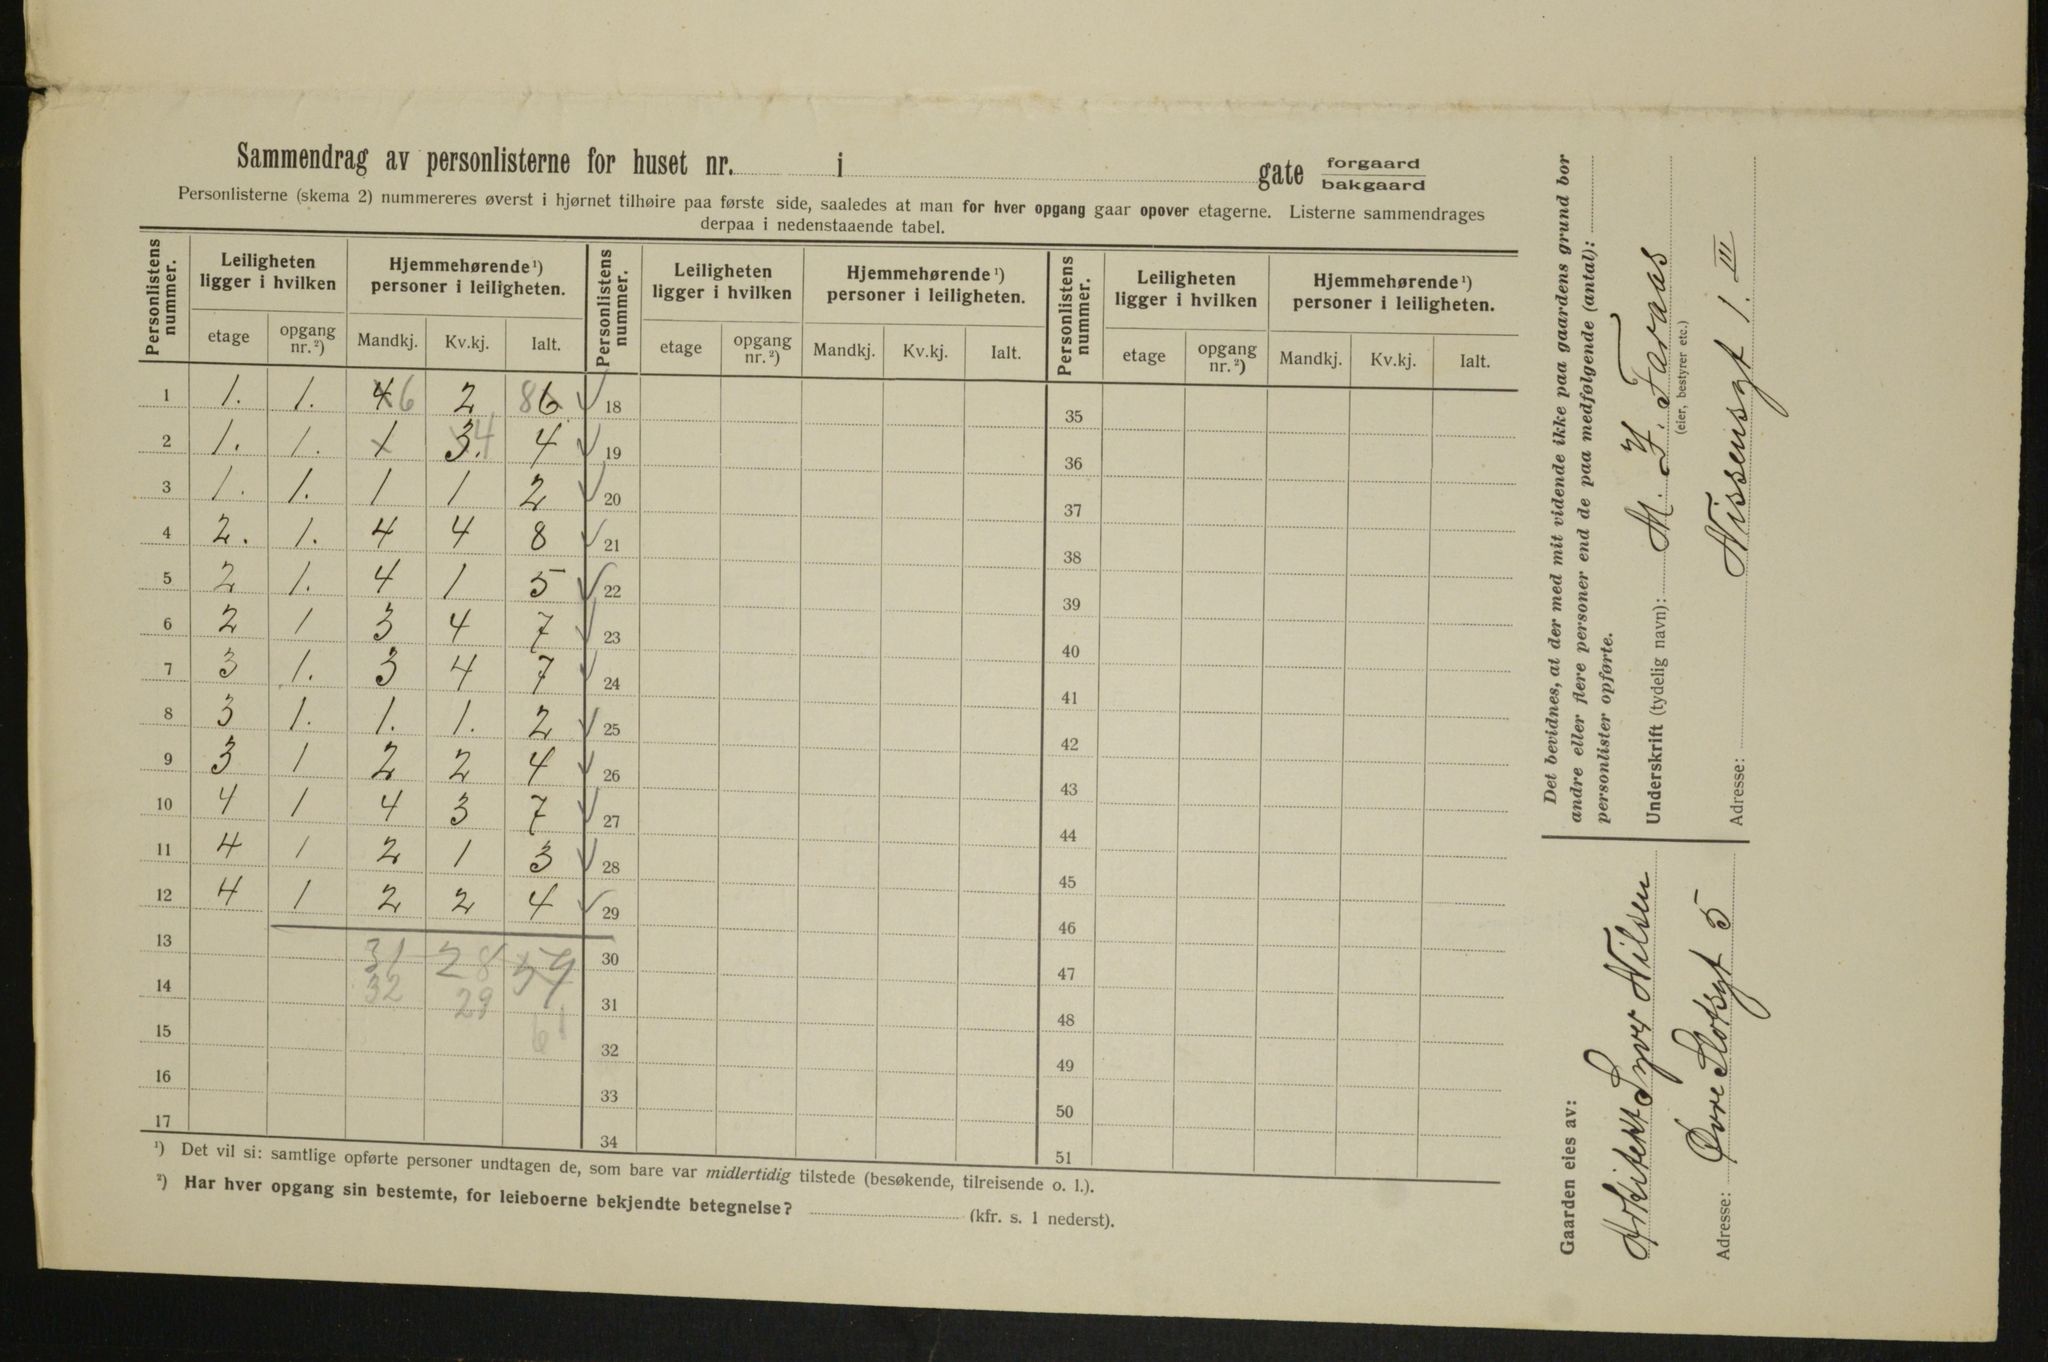 Sammendrag av personlisterne for huset nr. i gate forgaard
bakgaard
Personlisterne (skema 2) nummereres øverst i hjørnet tilhøire paa første side, saaledes at man for hver opgang gaar opover etagerne. Listerne sammendrages
derpaa i nedenstaaende tabel.
Personlistens nummer. Leiligheten ligger i hvilken Hjemmehørende ¹) personer i leiligheten. Personlistens nummer. Leiligheten ligger i hvilken Hjemmehørende ¹) personer i leiligheten. Personlistens nummer. Leiligheten ligger i hvilken Hjemmehørende ¹) personer i leiligheten.
etage opgang nr. ²) Mandkj. Kv.kj. Ialt. etage opgang nr. ²) Mandkj. Kv.kj. Ialt. etage opgang nr. ²) Mandkj. Kv.kj. Ialt.
1 1. 1. 4 6 2 8 6 18 35
2 1. 1. 1 3. 4 4 19 36
3 1. 1. 1 1 2 20 37
4 2. 1. 4 4 8 21 38
5 2 1. 4 1 5 22 39
6 2 1 3 4 7 23 40
7 3 1. 3 4 7 24 41
8 3 1. 1. 1. 2 25 42
9 3 1 2 2 4 26 43
10 4 1 4 3 7 27 44
11 4 1 2 1 3 28 45
12 4 1 2 2 4 29 46
13 31 28 59 30 47
14 32 29 31 48
15 61 32 49
16 33 50
17 34 51
¹) Det vil si: samtlige opførte personer undtagen de, som bare var midlertidig tilstede (besøkende, tilreisende o. l.).
²) Har hver opgang sin bestemte, for leieboerne bekjendte betegnelse? (kfr. s. 1 nederst).
Det bevidnes, at der med mit vidende ikke paa gaardens grund bor
andre eller flere personer end de paa medfølgende (antal):
personlister opførte.
Underskrift (tydelig navn): M. F. Favaas
(eier, bestyrer etc.)
Adresse: Nissensgt 1. III
Gaarden eies av:
Arkitekt Syver Nilsen
Adresse: Øvre Slotsgt 5